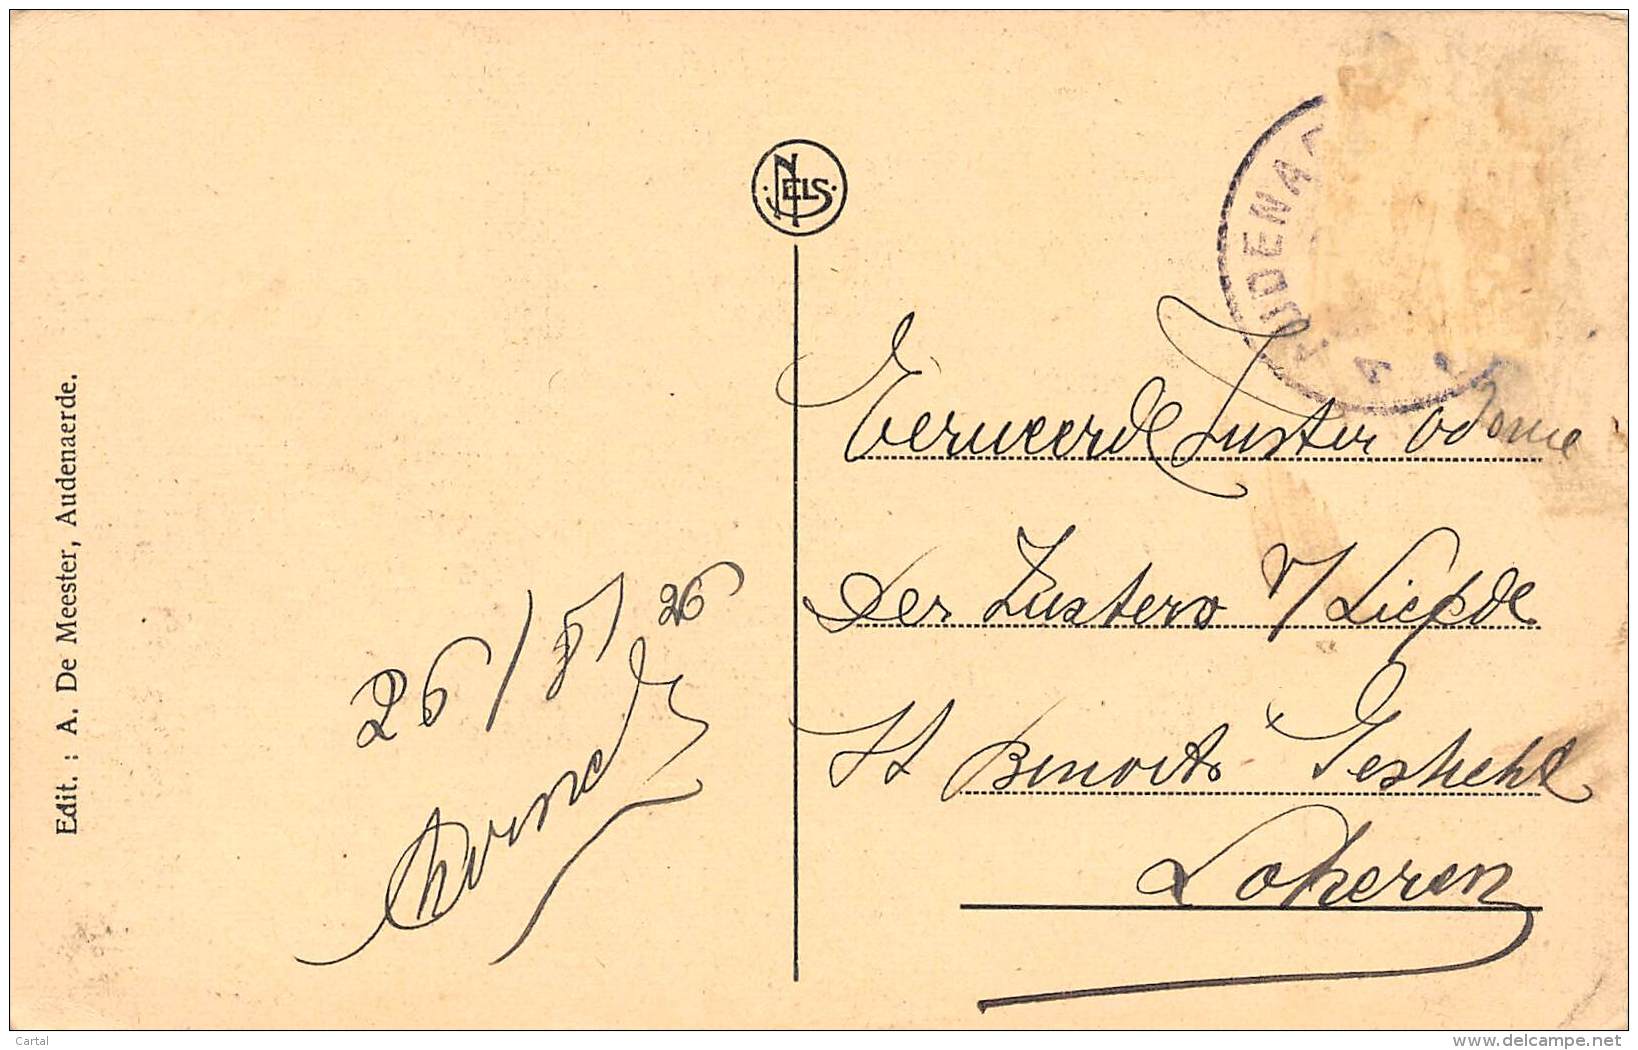 Edit. : A. De Meester, Audenaerde.
NELS
UDENA
A
26/8/26
Eerweerde Zuster Odonie
der Zusters v/ Liefde
St Benoits Gesticht
Lokeren
Cartal
www.delcampe.net